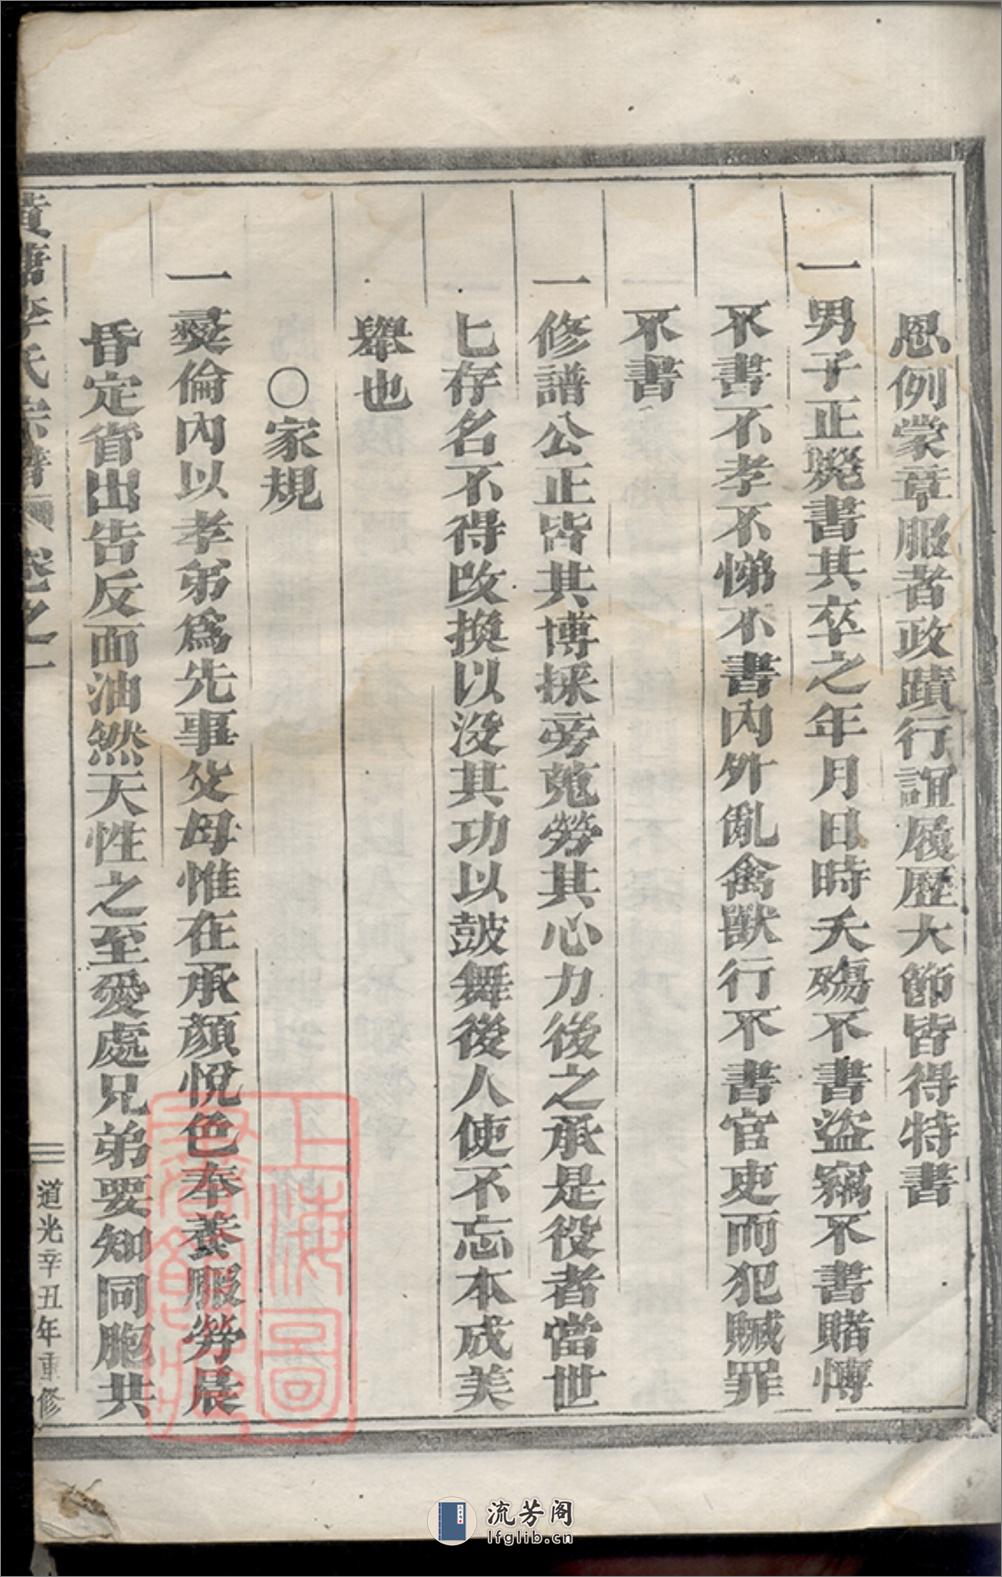 恩例蒙章服者政蹟行誼履歷大節皆得特書
一男子正斃書其卒之年月日時夭殤不書盜竊不書賭慱
不書不孝不悌不書內外亂禽獸行不書官吏而犯贓罪
不書
一修譜公正皆其博採旁蒐勞其心力後之承是役者當世
七存名不得改換以沒其功以鼓舞後人使不忘本成美
舉也
○家規
一彝倫內以孝弟爲先事父母惟在承顏悅色奉養服勞晨
昏定省出告反面油然天性之至愛處兄弟要知同胞共
黃塘李氏宗譜 卷之一
道光辛丑年重修
上海圖書館藏
流芳阁
lfglib.cn